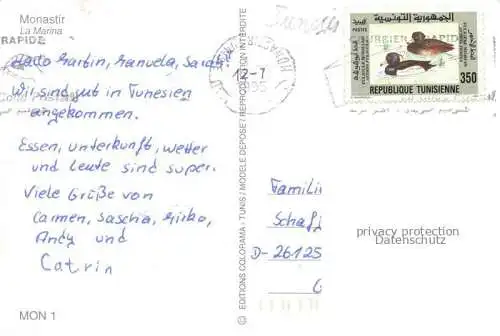 Monastir
La Marina
RAPIDE
Hallo Martin, Manuela, Sarah
Wir sind gut in Tunesien
angekommen.
Essen, unterkunft, wetter
und Leute sind super.
Viele Grüße von
Carmen, Sascha, Mirko,
Andy und
Catrin
MON 1
© EDITIONS COLORAMA - TUNIS / MODELE DEPOSE / REPRODUCTION INTERDITE
12-7
الجمهورية التونسية
350
REPUBLIQUE TUNISIENNE
Familie
Schaf
D-26125
privacy protection
Datenschutz